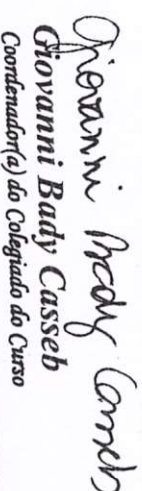 Giovanni Bady Casseb
Giovanni Bady Casseb
Coordenador(a) do Colegiado do Curso